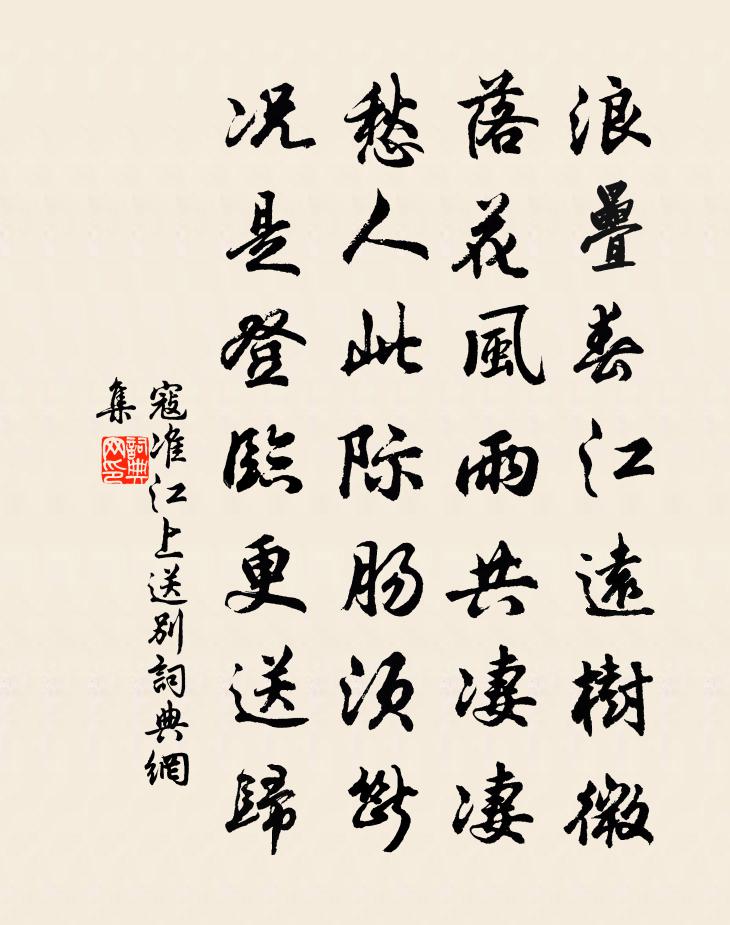 浪疊春江遠樹微
落花風雨共凄凄
愁人此际肠须斷
况是登臨更送歸
寇准江上送别詞典網
集
詞典網印